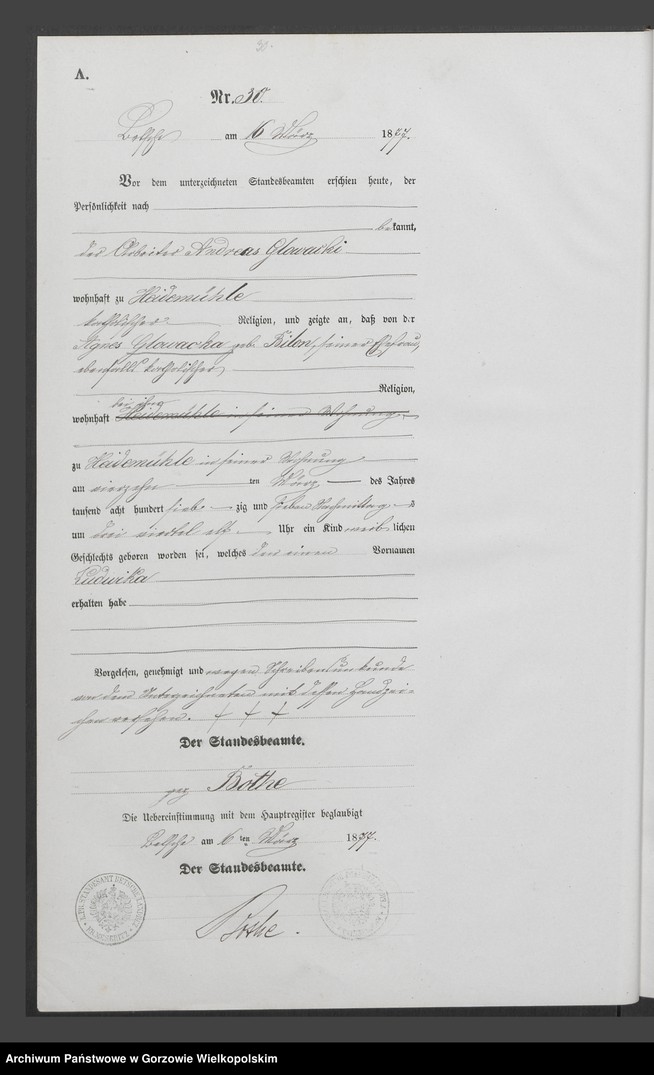 30.
A.
Nr. 30.
Betsche am 16 März 1877.
Vor dem unterzeichneten Standesbeamten erschien heute, der
Persönlichkeit nach
bekannt,
der Arbeiter Andreas Glowacki
wohnhaft zu Heidemühle
katholischer Religion, und zeigte an, daß von der
Agnes Glowacka geb. Bilen, seiner Ehefrau,
ebenfalls katholischer
Religion,
bei ihm
wohnhaft Heidemühle in seiner Wohnung
zu Heidemühle in seiner Wohnung
am vierzehn ten März des Jahres
tausend acht hundert siebzig und sieben Nachmittags
um drei viertel elf Uhr ein Kind weiblichen
Geschlechts geboren worden sei, welches den einen Vornamen
Ludwika
erhalten habe
Vorgelesen, genehmigt und wegen Schreibensunkunde
von dem Unterzeichneten mit dessen Handzei-
chen versehen. + + +
Der Standesbeamte.
gez Bothe
Die Uebereinstimmung mit dem Hauptregister beglaubigt
Betsche am 16 ten März 1877.
Der Standesbeamte.
Bothe.
Archiwum Państwowe w Gorzowie Wielkopolskim